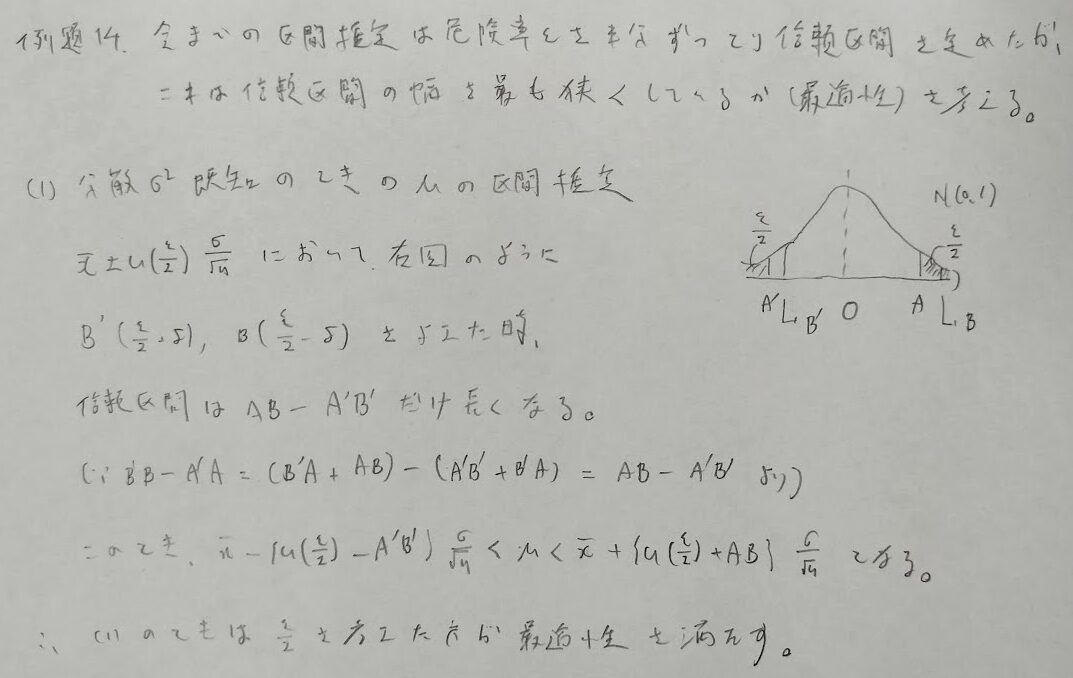 例題14. 今までの区間推定は危険率εを半分ずつとり信頼区間を定めたが、
これは信頼区間の幅を最も狭くしているか(最適性)を考える。
(1) 分散σ²既知のときのμの区間推定
x̄±u(ε/2) σ/√n において、右図のように
B'(ε/2+δ), B(ε/2-δ) と与えた時、
信頼区間は AB-A'B' だけ長くなる。
(∵ B'B-A'A = (B'A+AB)-(A'B'+B'A) = AB-A'B' より)
このとき、x̄-{u(ε/2)-A'B'} σ/√n < μ < x̄+{u(ε/2)+AB} σ/√n となる。
∴ (1)のときは ε/2 を考えた方が最適性を満たす。
N(0,1)
ε/2
ε/2
A' B' O A B